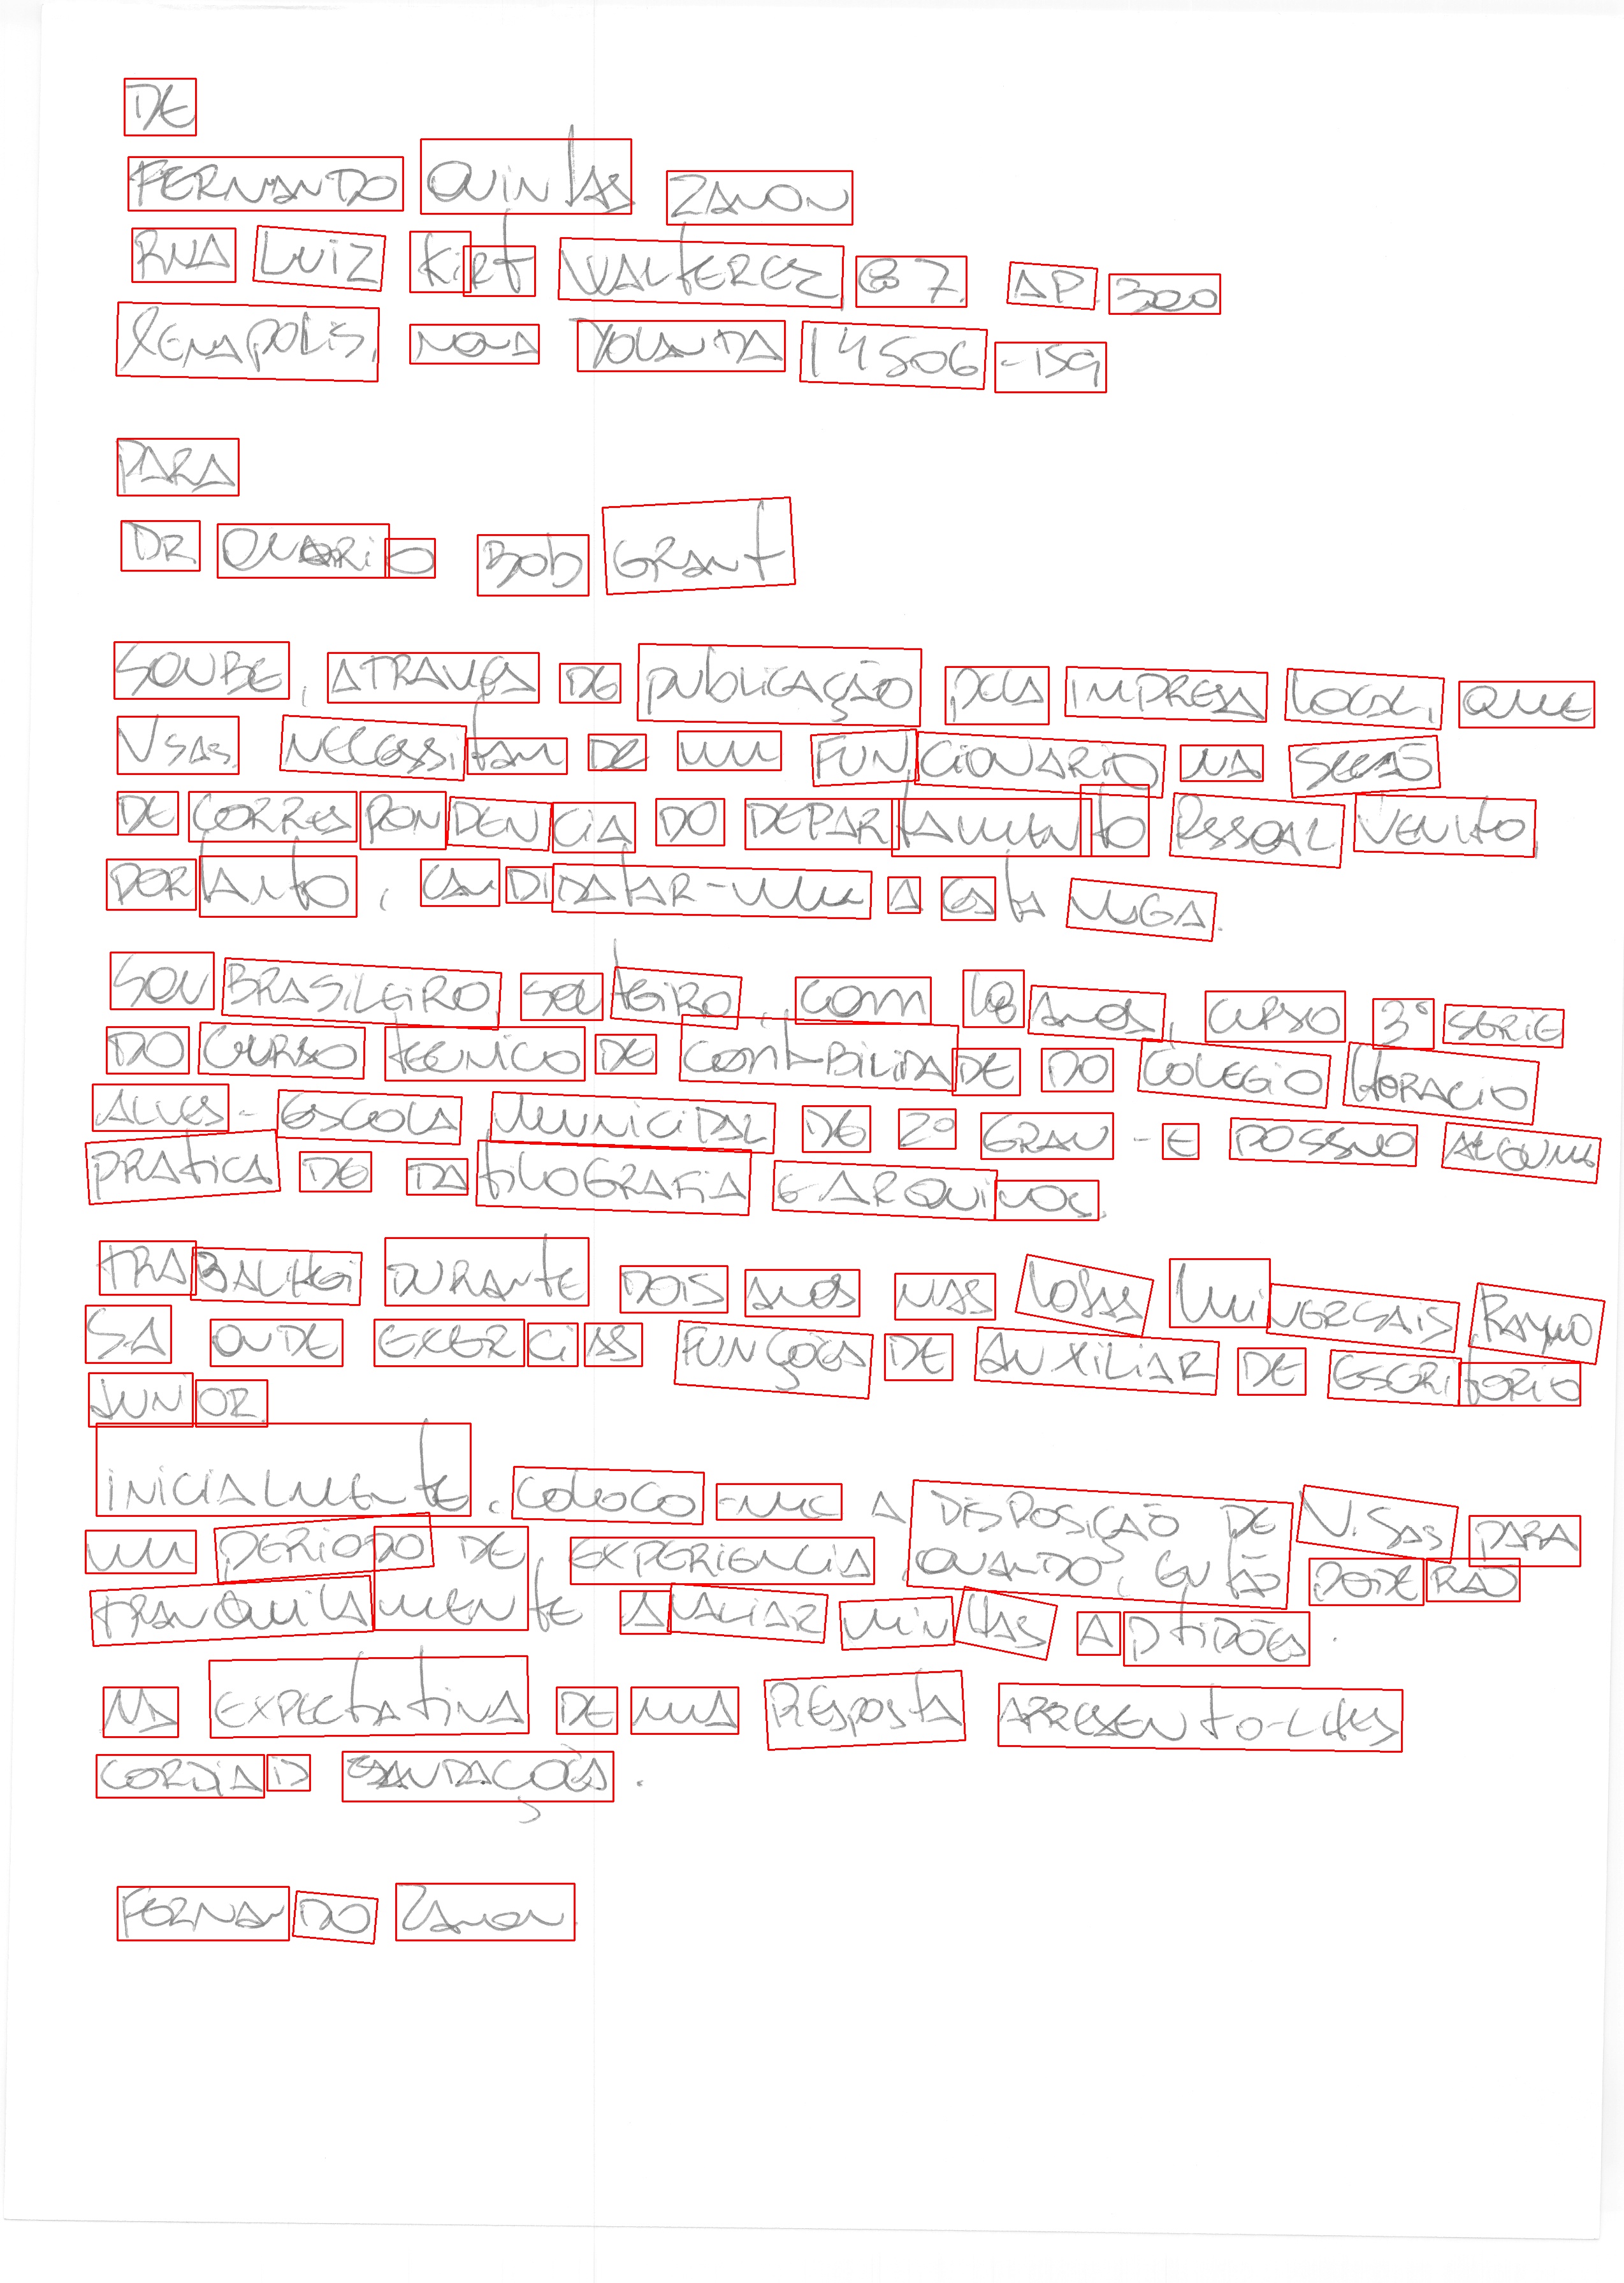 DE
FERNANDO QUINTAS ZANON
RUA LUIZ KIRT WALTEREZ 67. AP. 300
XENAPOLIS, NOVA YOLANDA 14506-159
PARA
DR OMARIO BOB GRANT
SOUBE, ATRAVES DE PUBLICAÇÃO PELA IMPRESA LOCAL, QUE
VSAS. NECESSITAM DE UM FUNCIONARIO NA SEÇÃO
DE CORRESPONDENCIA DO DEPARTAMENTO PESSOAL VENHO
PORTANTO, CANDIDATAR-ME A ESTA VAGA.
SOU BRASILEIRO, SOLTEIRO, COM 18 ANOS, CURSO 3º SERIE
DO CURSO TECNICO DE CONTABILIDADE DO COLEGIO HORACIO
ALVES - ESCOLA MUNICIPAL DE 2º GRAU - E POSSUO ALGUMA
PRATICA DE DATILOGRAFIA E ARQUIVOS.
TRABALHEI DURANTE DOIS ANOS NAS LOJAS UNIVERSAIS, RAMO
SA ONDE EXERCI AS FUNÇÕES DE AUXILIAR DE ESCRITORIO
JUNIOR.
INICIALMENTE, COLOCO-ME A DISPOSIÇÃO DE V.SAS PARA
UM PERIODO DE EXPERIENCIA QUANDO, ENTÃO PODERÃO
TRANQUILAMENTE AVALIAR MINHAS APTIDÕES.
NA EXPECTATIVA DE UMA RESPOSTA APRESENTO-LHES
CORDIAIS SAUDAÇÕES.
FERNANDO ZANON